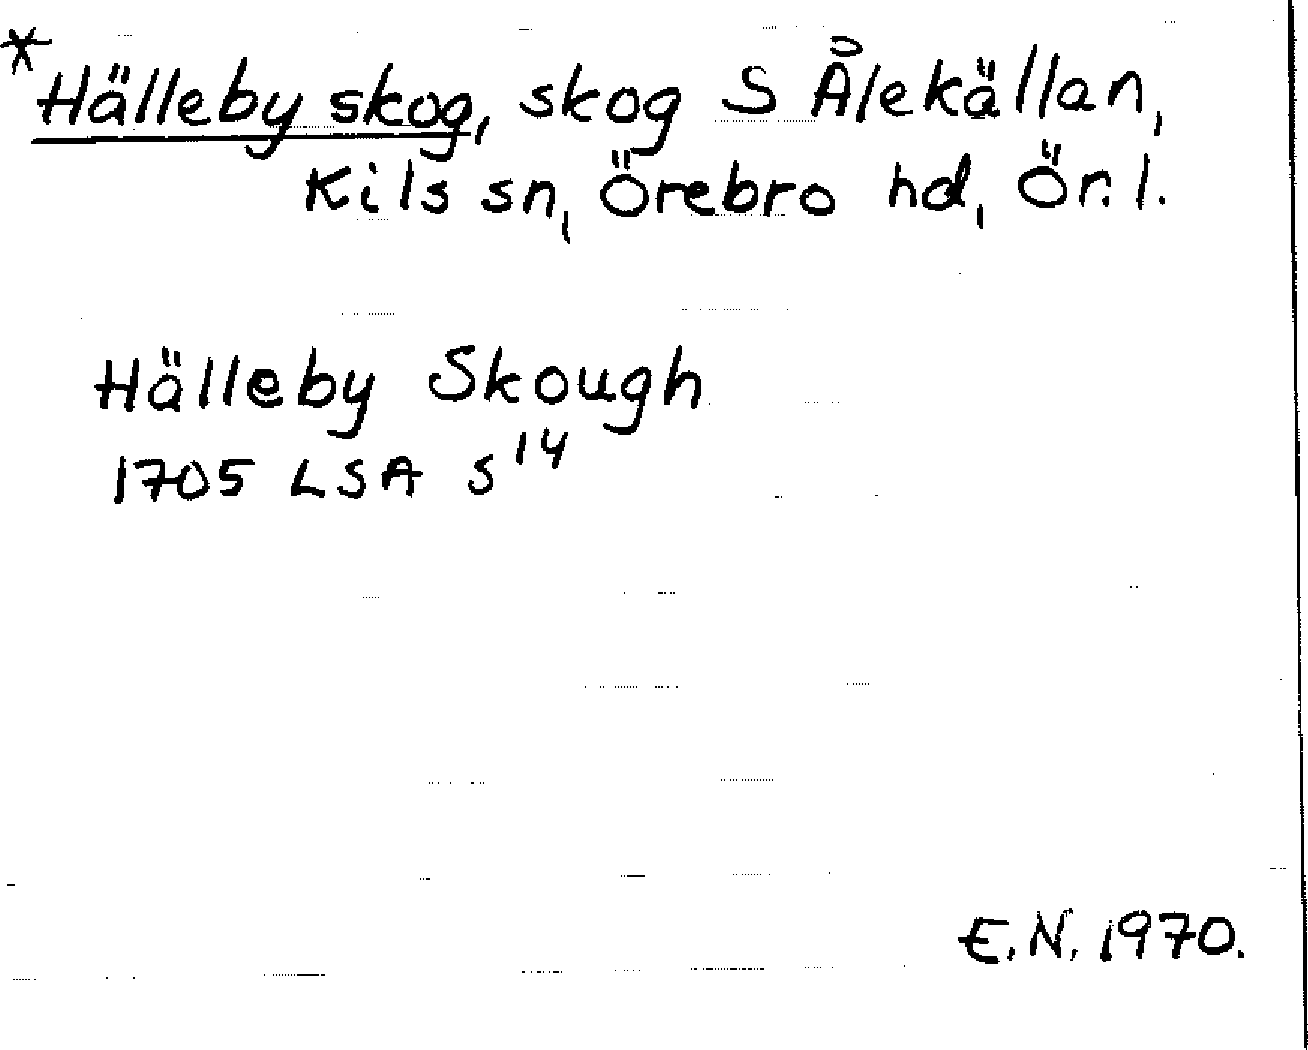 *Hälleby skog, skog S Ålekällan,
Kils sn, Örebro hd, Ör. l.
Hälleby Skough
1705 LSA S¹⁴
E. N. 1970.